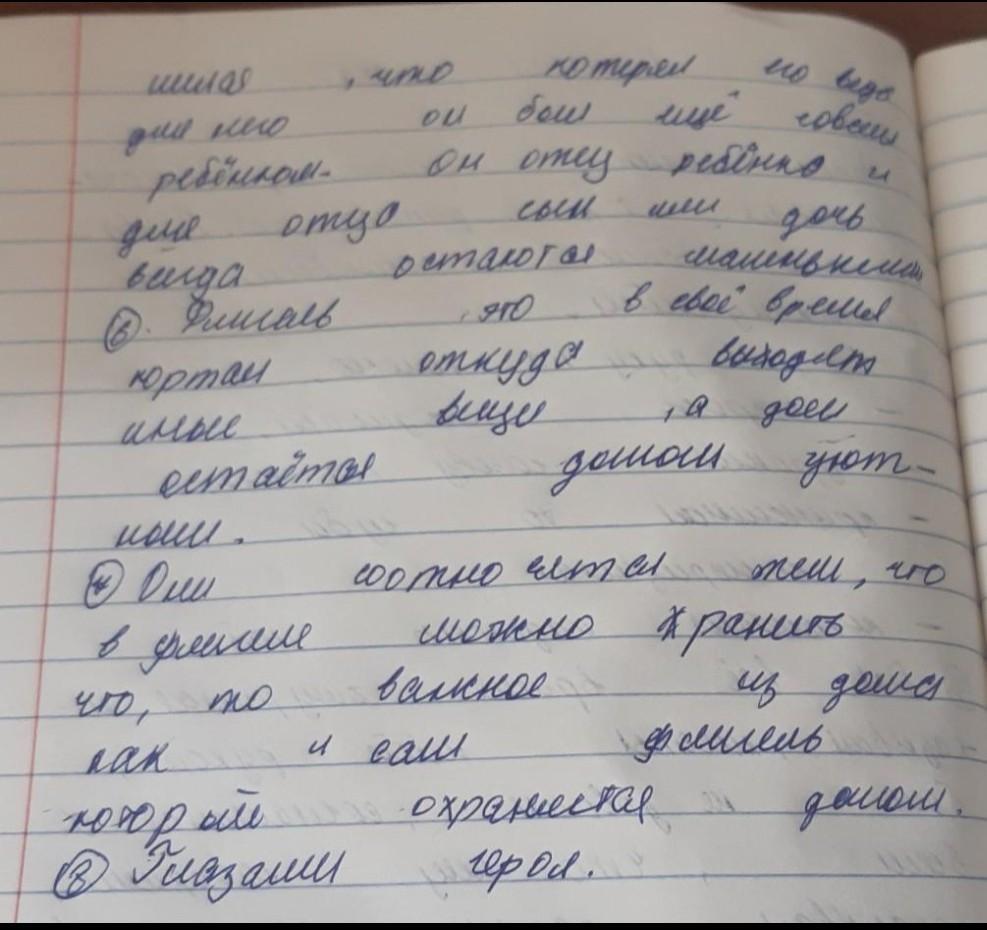 , что потерял его ведь
для него он был ещё совсем
ребёнком. Он отец ребёнка и
для отца сын или дочь
всегда остаются маленькими
⑥. Флигель , это в своё время
портал откуда выходят
иные вещи , а дом
остаётся домом уют-
ным.
⑦ Они соотносятся тем, что
в флигиле можно хранить
что, то важное из дома
как и сам флигель
который охраняется домом.
⑧ Глазами героя.